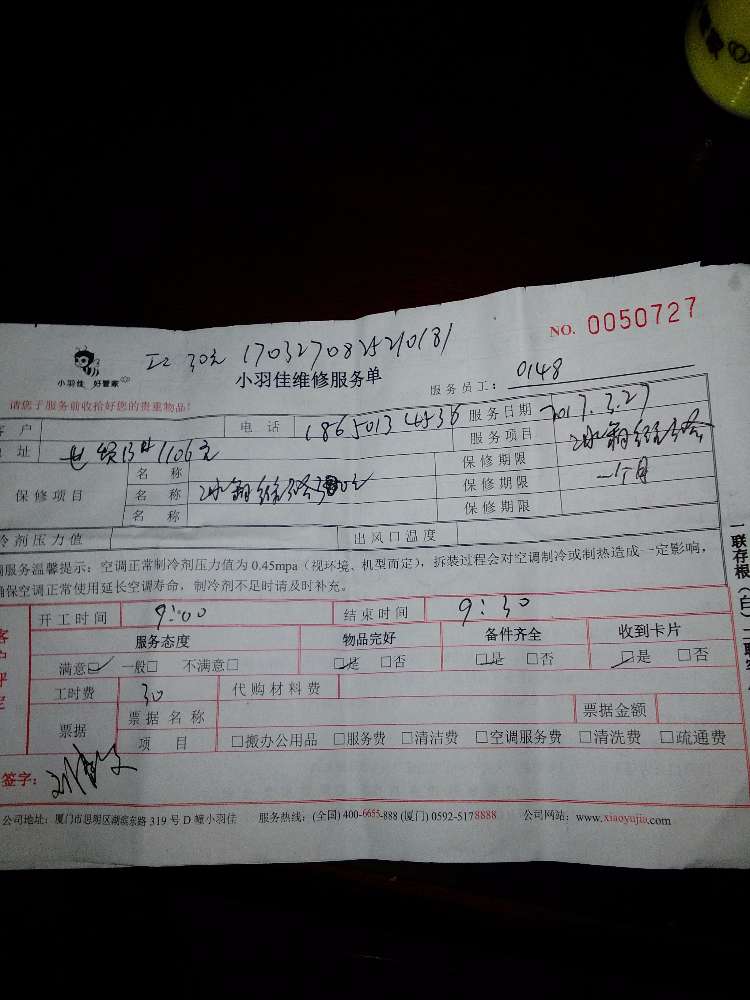 NO. 0050727
30元 1703270825210181
小羽佳 好管家
小羽佳维修服务单
服务员工: 0148
请您于服务前收拾好您的贵重物品!
客户
电话 18650134536
服务日期 2017.3.27
地址 1106
服务项目
保修项目
名称
保修期限
名称
保修期限 一个月
名称
保修期限
冷剂压力值
出风口温度
调服务温馨提示:空调正常制冷剂压力值为 0.45mpa(视环境、机型而定),拆装过程会对空调制冷或制热造成一定影响,
确保空调正常使用延长空调寿命,制冷剂不足时请及时补充。
开工时间 9:00
结束时间 9:30
服务态度 物品完好 备件齐全 收到卡片
满意□ 一般□ 不满意□ □是 □否 □是 □否 □是 □否
工时费 30 代购材料费
票据
票据名称
票据金额
项目 □搬办公用品 □服务费 □清洁费 □空调服务费 □清洗费 □疏通费
签字:
公司地址:厦门市思明区湖滨东路 319 号 D 幢小羽佳 服务热线:(全国) 400-6655-888 (厦门) 0592-5178888 公司网站:www.xiaoyujia.com
一联存根(白)